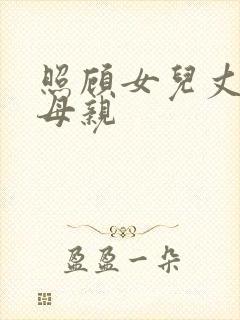 照顧女兒丈
母親
盈盈一朵